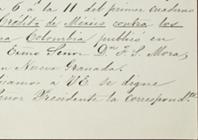 a 6 á la 11 del primer cuaderno
Crédito de Méjico contra los
Colombia publicó en
Exmo Señor Dn. J. S. Mora,
Nueva Granada.
á V.E. se digne
Presidente la correspond.te